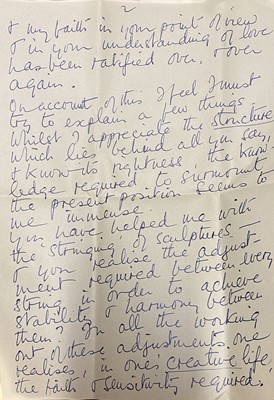 2
& my faith in your point of view
& in your understanding of love
has been ratified over, & over
again.
On account of this I feel I must
try to explain a few things
Whilst I appreciate the structure
which lies behind all you say,
& know its rightness – the know-
ledge required to surmount
the present position seems to
me immense.
You have helped me with
the stringing of sculptures –
& you realise the adjust-
ment required between every
string in order to achieve
stability & harmony between
them? In all the working
out of these adjustments one
realises, in one's creative life,
the faith & sensitivity required.